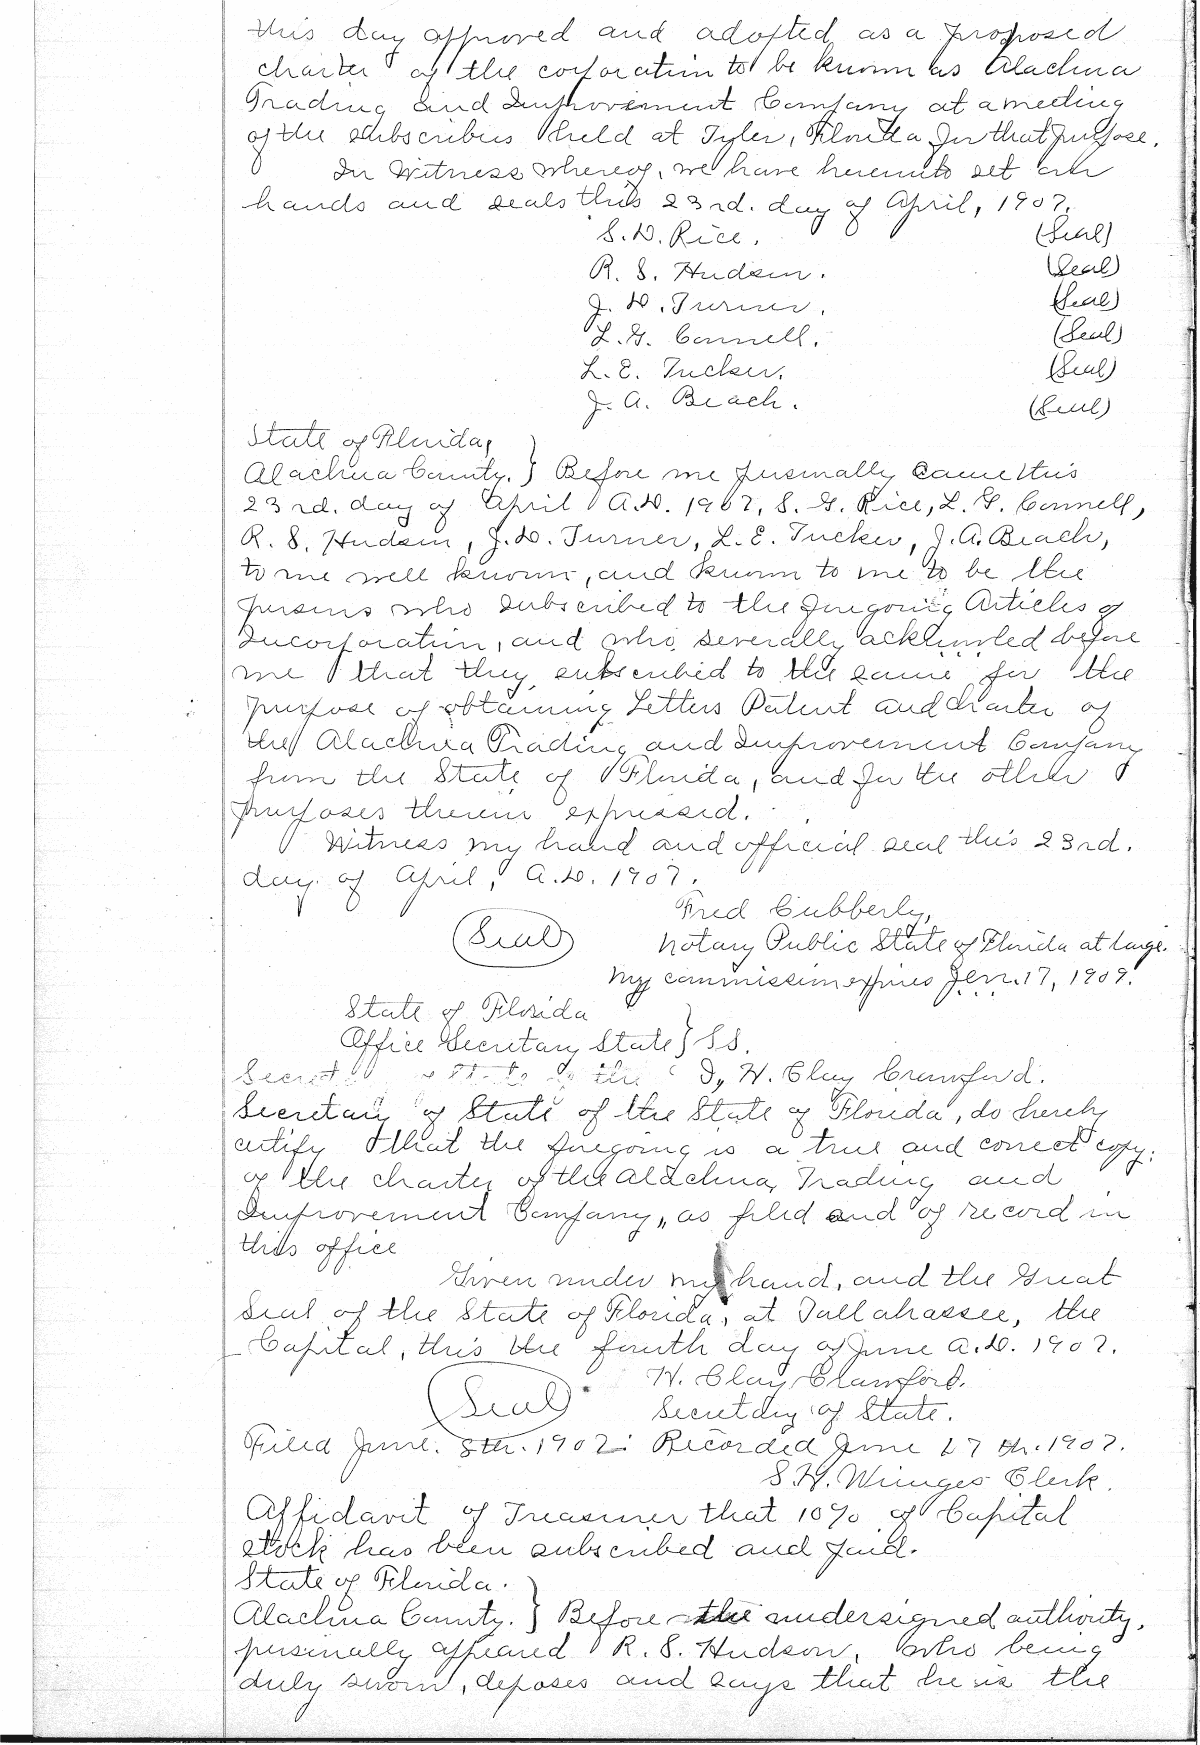 this day approved and adopted as a proposed
charter of the corporation to be known as Alachua
Trading and Improvement Company at a meeting
of the subscribers held at Tyler, Florida for that purpose.
In Witness whereof, we have hereunto set our
hands and seals this 23rd. day of April, 1907.
S. D. Rice. (Seal)
R. S. Hudson. (Seal)
J. D. Turner. (Seal)
L. G. Connell. (Seal)
L. E. Tucker. (Seal)
J. A. Beach. (Seal)
State of Florida,
Alachua County. } Before me personally came this
23rd. day of April A.D. 1907, S. G. Rice, L. G. Connell,
R. S. Hudson, J. D. Turner, L. E. Tucker, J. A. Beach,
to me well known, and known to me to be the
persons who subscribed to the foregoing Articles of
Incorporation, and who severally acknowled before
me that they subscribed to the same for the
purpose of obtaining Letters Patent and charter of
the Alachua Trading and Improvement Company
from the State of Florida, and for the other
purposes therein expressed.
Witness my hand and official seal this 23rd.
day of April, A.D. 1907.
Fred Cubberly,
(Seal) Notary Public State of Florida at large.
My commission expires Jan. 17, 1909.
State of Florida
Office Secretary State } SS.
I, H. Clay Crawford.
Secretary of State of the State of Florida, do hereby
certify that the foregoing is a true and correct copy
of the charter of the Alachua, Trading and
Improvement Company,, as filed and of record in
this office
Given under my hand, and the Great
Seal of the State of Florida, at Tallahassee, the
Capital, this the fourth day of June A.D. 1907.
H. Clay Crawford.
(Seal) Secretary of State.
Filed June. 8th. 1907: Recorded June 17th. 1907.
S. H. Wienges Clerk.
Affidavit of Treasurer that 10% of Capital
stock has been subscribed and paid.
State of Florida.
Alachua County. } Before the undersigned authority,
personally appeared R. S. Hudson, who being
duly sworn, deposes and says that he is the